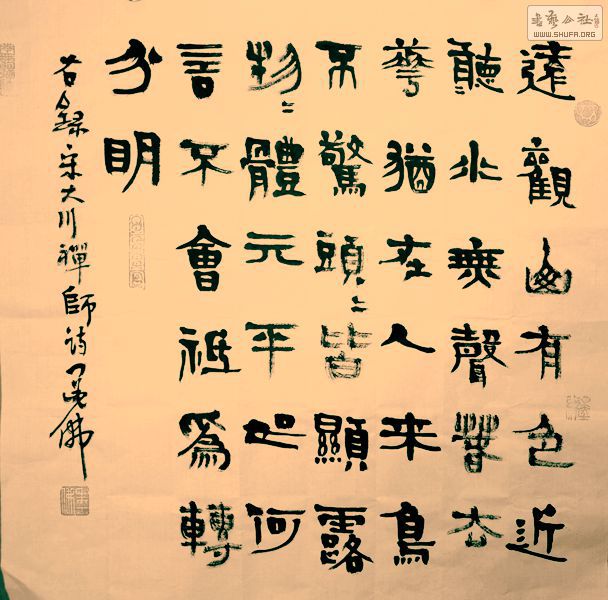 書藝公社
WWW.SHUFA.ORG
遠觀山有色近
聽水無聲春去
華猶在人來鳥
不驚頭〻皆顯露
物〻體元平如何
言不會祇為轉
分明
右錄宋大川禪師詩 佛